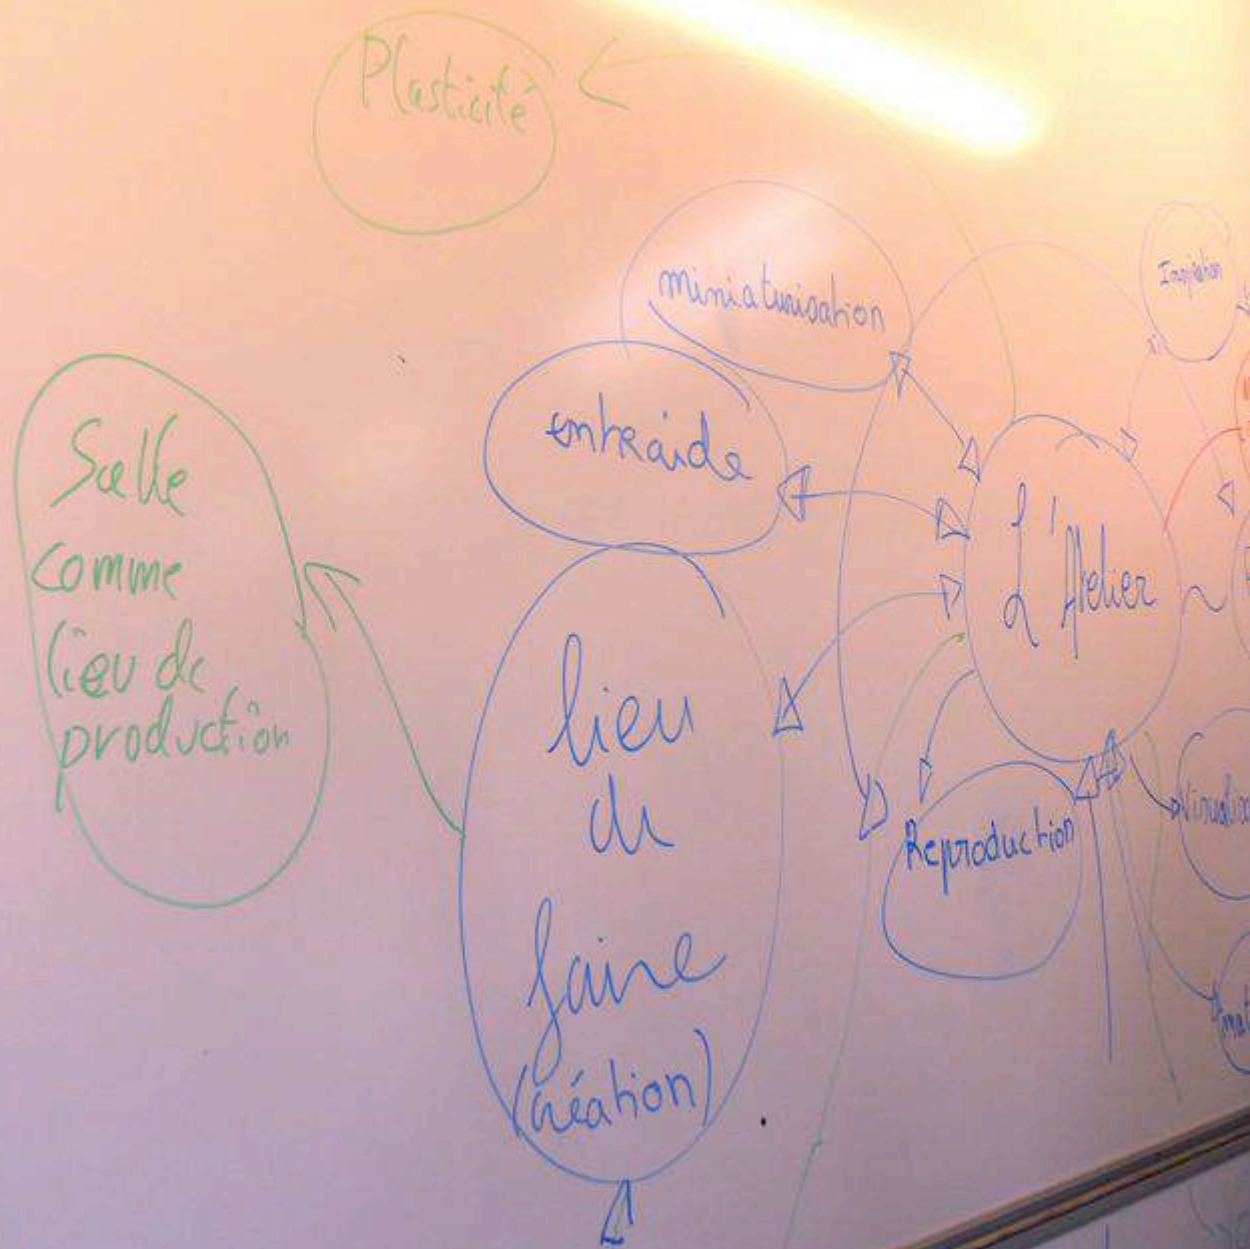 Plasticité
miniaturisation
Inspiration
entraide
Salle
comme
lieu de
production
L'Atelier
lieu
du
faire
(création)
Reproduction